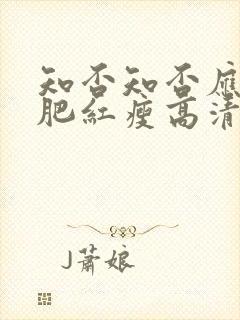 知否知否應
肥紅瘦高清
J蕭娘